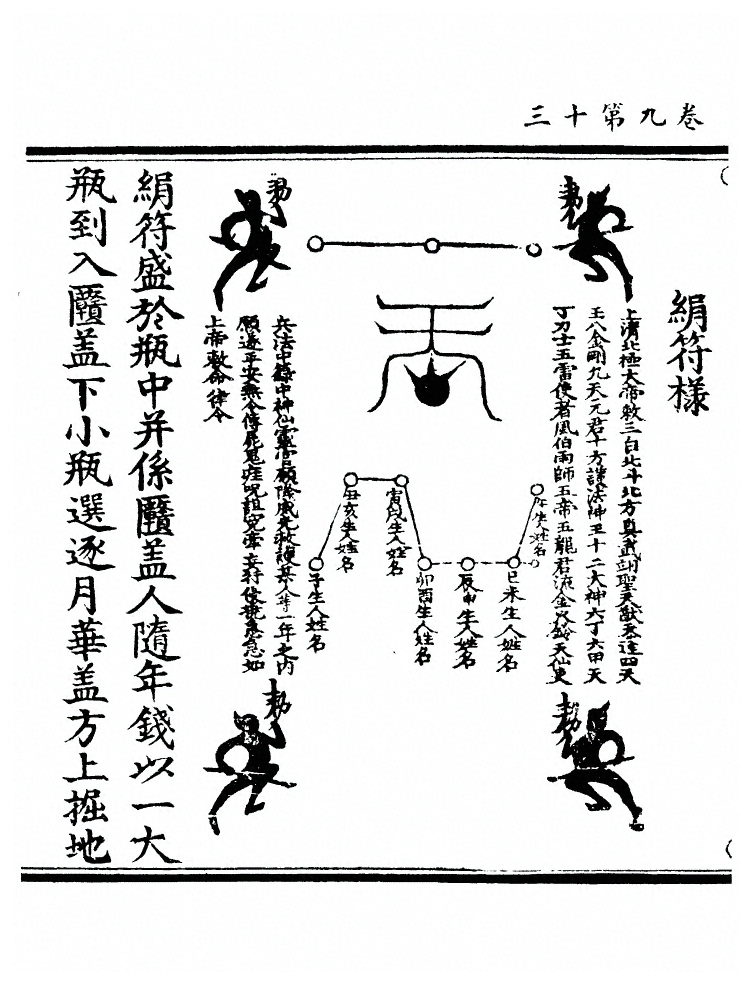 卷九第十三
絹符樣
上清北極大帝敕三台北斗北方真武翊聖天猷天蓬四天
王八金剛九天元君十方護法神王十二大神六丁六甲天
丁力士五雷使者風伯雨師五帝五龍君流金火鈴天仙吏
敕
敕
午生人姓名
巳未生人姓名
辰申生人姓名
卯酉生人姓名
寅戌生人姓名
丑亥生人姓名
子生人姓名
敕
敕
兵法中籙中神仙靈官願除威光救護某人等一年之內
願遂平安無令傳屍鬼疰呪詛冤
急急如
上帝敕命律令
絹符盛於瓶中并係靨蓋人隨年錢以一大
瓶到入靨蓋下小瓶選逐月華蓋方上掘地